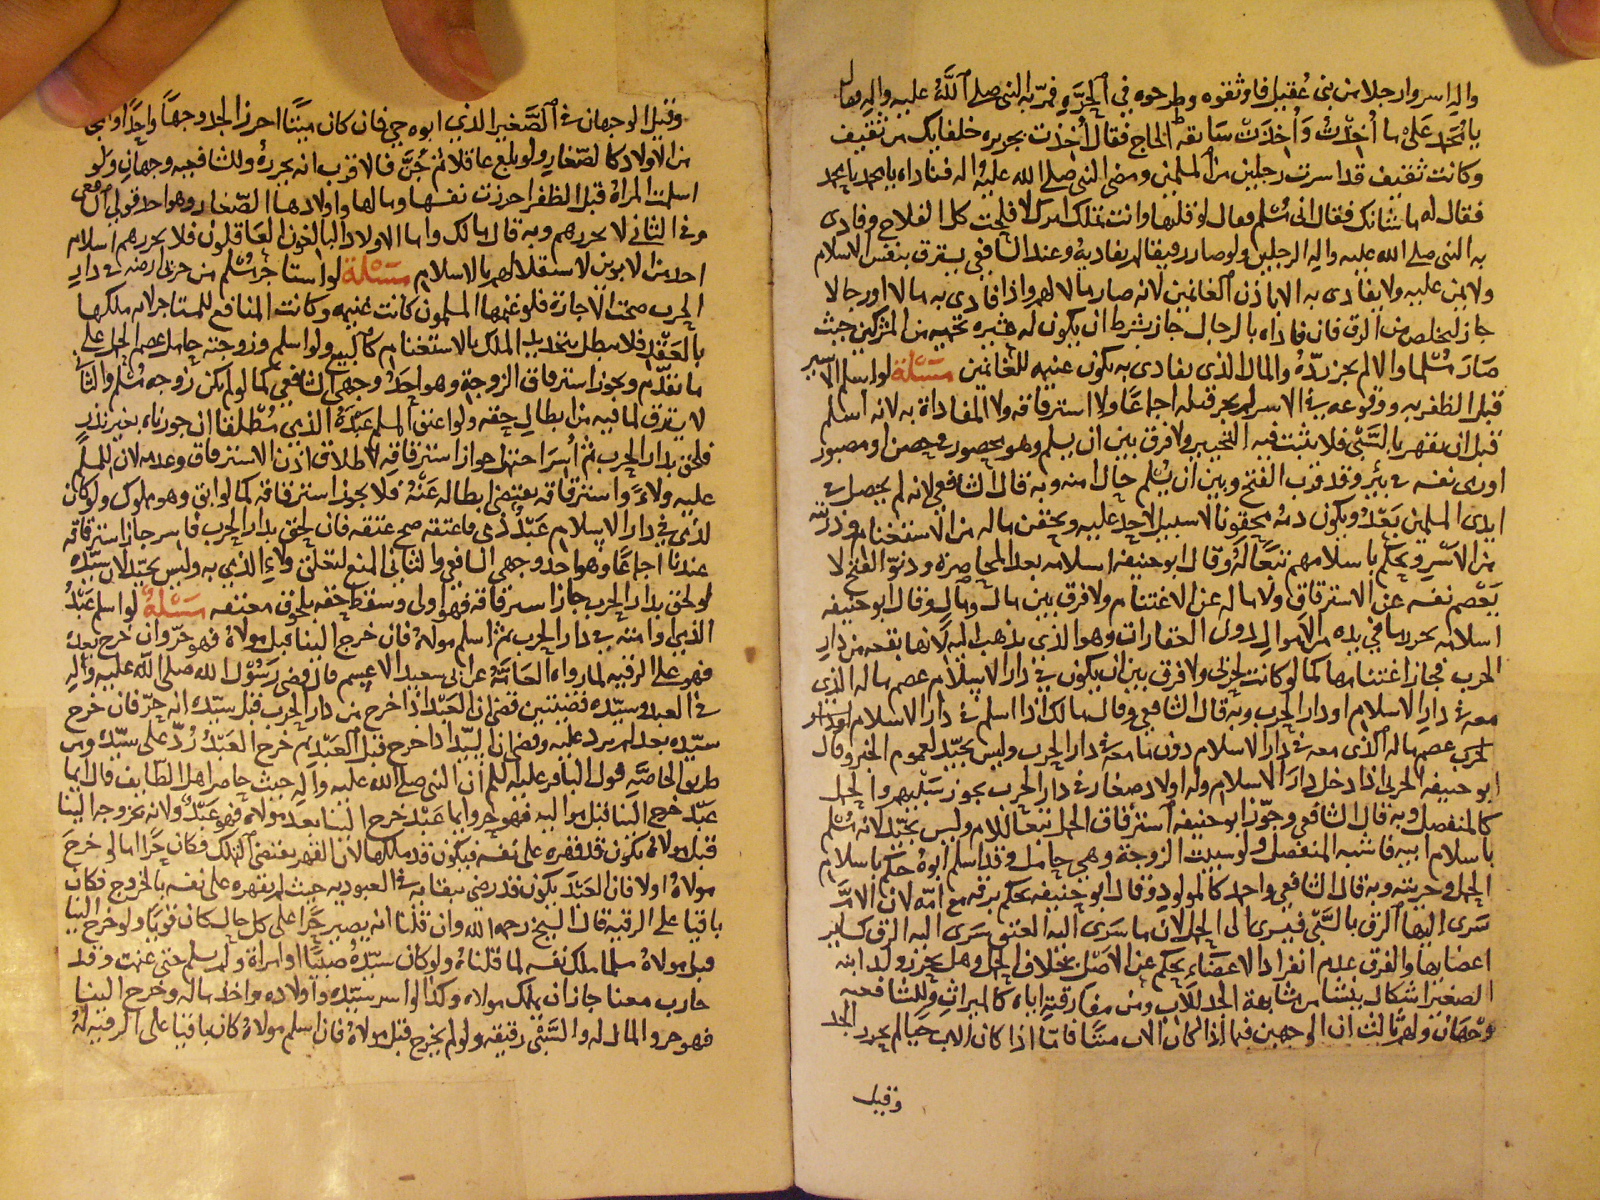 واله اسروا رجلا من بنى عقيل فاوثقوه وطرحوه في الحرة فمر به النبى صلى الله عليه واله فقال
يا محمد على ما اخذت واخذت سابقة الحاج فقال اخذت بجريرة حلفايك من ثقيف
وكانت ثقيف قد اسرت رجلين من المسلمين ومضى النبى صلى الله عليه واله فناداه يا محمد يا محمد
فقال له ما شانك فقال انى مسلم فقال لو قلتها وانت تملك امرك لافلحت كل الفلاح وفادى
به النبى صلى الله عليه واله الرجلين ولو صار رقيقا لم يفاد به وعند الشافعي يسترق بنفس الاسلام
ولا يمن عليه ولا يفادى به الا باذن الغانمين لانه صار مالا لهم واذا فادى به مالا او رجالا
جاز ليخلص من الرق فان فاداه بالرجال جاز بشرط ان يكون له عشيرة تحميه من المشركين حيث
صار مسلما والا لم يجز رده والمال الذى يفادى به يكون غنيمه للغانمين مسئلة لو اسلم الاسير
قبل الظفر به ووقوعه في الاسر لم يجز قتله اجماعا ولا استرقاقه ولا المفاداة به لانه اسلم
قبل ان يقهر بالسبى فلا يثبت فيه التخيير ولا فرق بين ان يسلم وهو محصور في حصن او مصبور
او رمى نفسه في بئر وقد قرب الفتح وبين ان يسلم حال امنه وبه قال الشافعي لانه لم يحصل في
ايدى المسلمين بعد ويكون دمه محقونا لا سبيل لاحد عليه ويحقن ماله من الاستغنام وذريته
من الاسر ويحكم باسلامهم تبعا له وقال ابو حنيفه اسلامه بعد المحاصرة ودنو الفتح لا
يعصم نفسه عن الاسترقاق ولا ماله عن الاغتنام ولا فرق بين مال ومال وقال ابو حنيفه
اسلامه يحرز ما في يده من الاموال دون العقارات وهو الذى يذهب اليه لانها بقعه من دار
الحرب فجاز اغتنامها كما لو كانت لحربى ولا فرق بين ان يكون في دار الاسلام عصم ماله الذى
معه في دار الاسلام او دار الحرب وبه قال الشافعي وقال مالك اذا اسلم في دار الاسلام او دار
الحرب عصم ماله الذى معه في دار الاسلام دون ما معه في دار الحرب وليس بجيد لعموم الخبر وقال
ابو حنيفه الحربى اذا دخل دار الاسلام وله اولاد صغار في دار الحرب يجوز سبيهم والحمل
كالمنفصل وبه قال الشافعي وجوز ابو حنيفه استرقاق الحمل تبعا للام وليس بجيد لانه مسلم
باسلام ابيه فاشبه المنفصل ولو سبيت الزوجة وهي حامل وقد اسلم ابوه حكم باسلام
الحمل وحريته وبه قال الشافعي واحمد كالمولود وقال ابو حنيفه يحكم برقه مع امه لان الام
سرى اليها الرق بالسبى فيسرى الى الحمل لان ما سرى اليه العتق سرى اليه الرق كساير
اعضايها والفرق عدم انفراد الاعضاء بحكم عن الاصل بخلاف الحمل وهل يحرز ولد ابنه
الصغير اشكال ينشا من مشابهة الجد للاب ومن مفارقته اياه كالميراث وللشافعيه
وجهان ولهم ثالث ان الوجهين فيما اذا كان الاب ميتا فاما اذا كان الاب حيا لم يحرز الجد
وقيل
وقيل الوجهان في الصغير الذي ابوه حي فان كان ميتا احرز الجد وجها واحدا
من الاولاد كالصغار ولو بلغ عاقلا ثم جن فالاقرب انه يحرزه وللشافعيه وجهان ولو
اسلمت المراة قبل الظفر احرزت نفسها ومالها واولادها الصغار وهو احد قولي الشافعي
وفي الثاني لا تحرزهم وبه قال مالك واما الاولاد البالغون العاقلون فلا يحرزهم اسلام
احد من الابوين لاستقلالهم بالاسلام مسئلة لو استاجر مسلم من حربى ارضه في دار
الحرب صحت الاجازة فلو غنمها المسلمون كانت غنيمه وكانت المنافع للمستاجر لانه ملكها
بالعقد فلا يبطل بتجديد الملك بالاستغنام كالبيع ولو اسلم وزوجته حامل عصم الحمل على
ما تقدم ويجوز استرقاق الزوجة وهو احد وجهى الشافعي كما لو لم يكن زوجه مسلم والثانى
لا يسترق لما فيه من ابطال حقه ولو اعتق المسلم عبده الذمى مطلقا ان جوزناه بغير نذر
فلحق بدار الحرب ثم اسر احتمل جواز استرقاقه لاطلاق اذن الاسترقاق وعدمه لان للمسلم
عليه ولاء واسترقاقه يقتضى ابطاله عنه فلا يجوز استرقاقه كما لو ابق وهو مملوك ولو كان
لذمى في دار الاسلام عبد ذمى فاعتقه صح عتقه فان لحق بدار الحرب فاسر جاز استرقاقه
عندنا اجماعا وهو احد وجهى الشافعي والثاني المنع لتعلق ولاء الذمي به وليس بجيد لان سيده
لو لحق بدار الحرب جاز استرقاقه فهو اولى وسقط حقه بلحوق معتقه مسئلة لو اسلم عبد
الذمى او امته في دار الحرب ثم اسلم مولاه فان خرج الينا قبل مولاه فهو حر وان خرج بعده
فهو على الرقيه لما رواه العامة عن ابى سعيد الاعسم قال قضى رسول الله صلى الله عليه واله
في العبد وسيده قضيتين قضى ان العبد اذا خرج من دار الحرب قبل سيده انه حر فان خرج
سيده بعد لم يرد عليه وقضى ان السيد اذا خرج قبل العبد ثم خرج العبد رد على سيده ومن
طريق الخاصه قول الباقر عليه السلم ان النبى صلى الله عليه واله حيث حاصر اهل الطايف قال ايما
عبد خرج الينا قبل مواليه فهو حر وايما عبد خرج الينا بعد مولاه فهو عبد ولانه بخروجه الينا
قبل مولاه يكون قد قهره على نفسه فيكون قد ملكها لان القهر يقتضى التملك فكان حرا اما لو خرج
مولاه اولا فان العبد يكون قد رضى ببقايه في العبوديه حيث لم يقهره على نفسه بالخروج فكان
باقيا على الرقيه قال الشيخ رحمه الله وان قلنا انه يصير حرا على كل حال كان قويا ولو خرج الينا
قبل مولاه مسلما ملك نفسه لما قلناه ولو كان سيده صبيا او امراة ولم يسلم حتى غنمت وقد
حارب معنا جاز ان يملك مولاه وكذا لو اسر سيده واولاده واخذ ماله وخرج الينا
فهو حر والمال له والسبى رقيقه ولو لم يخرج قبل مولاه فان اسلم مولاه كان باقيا على الرقيه له